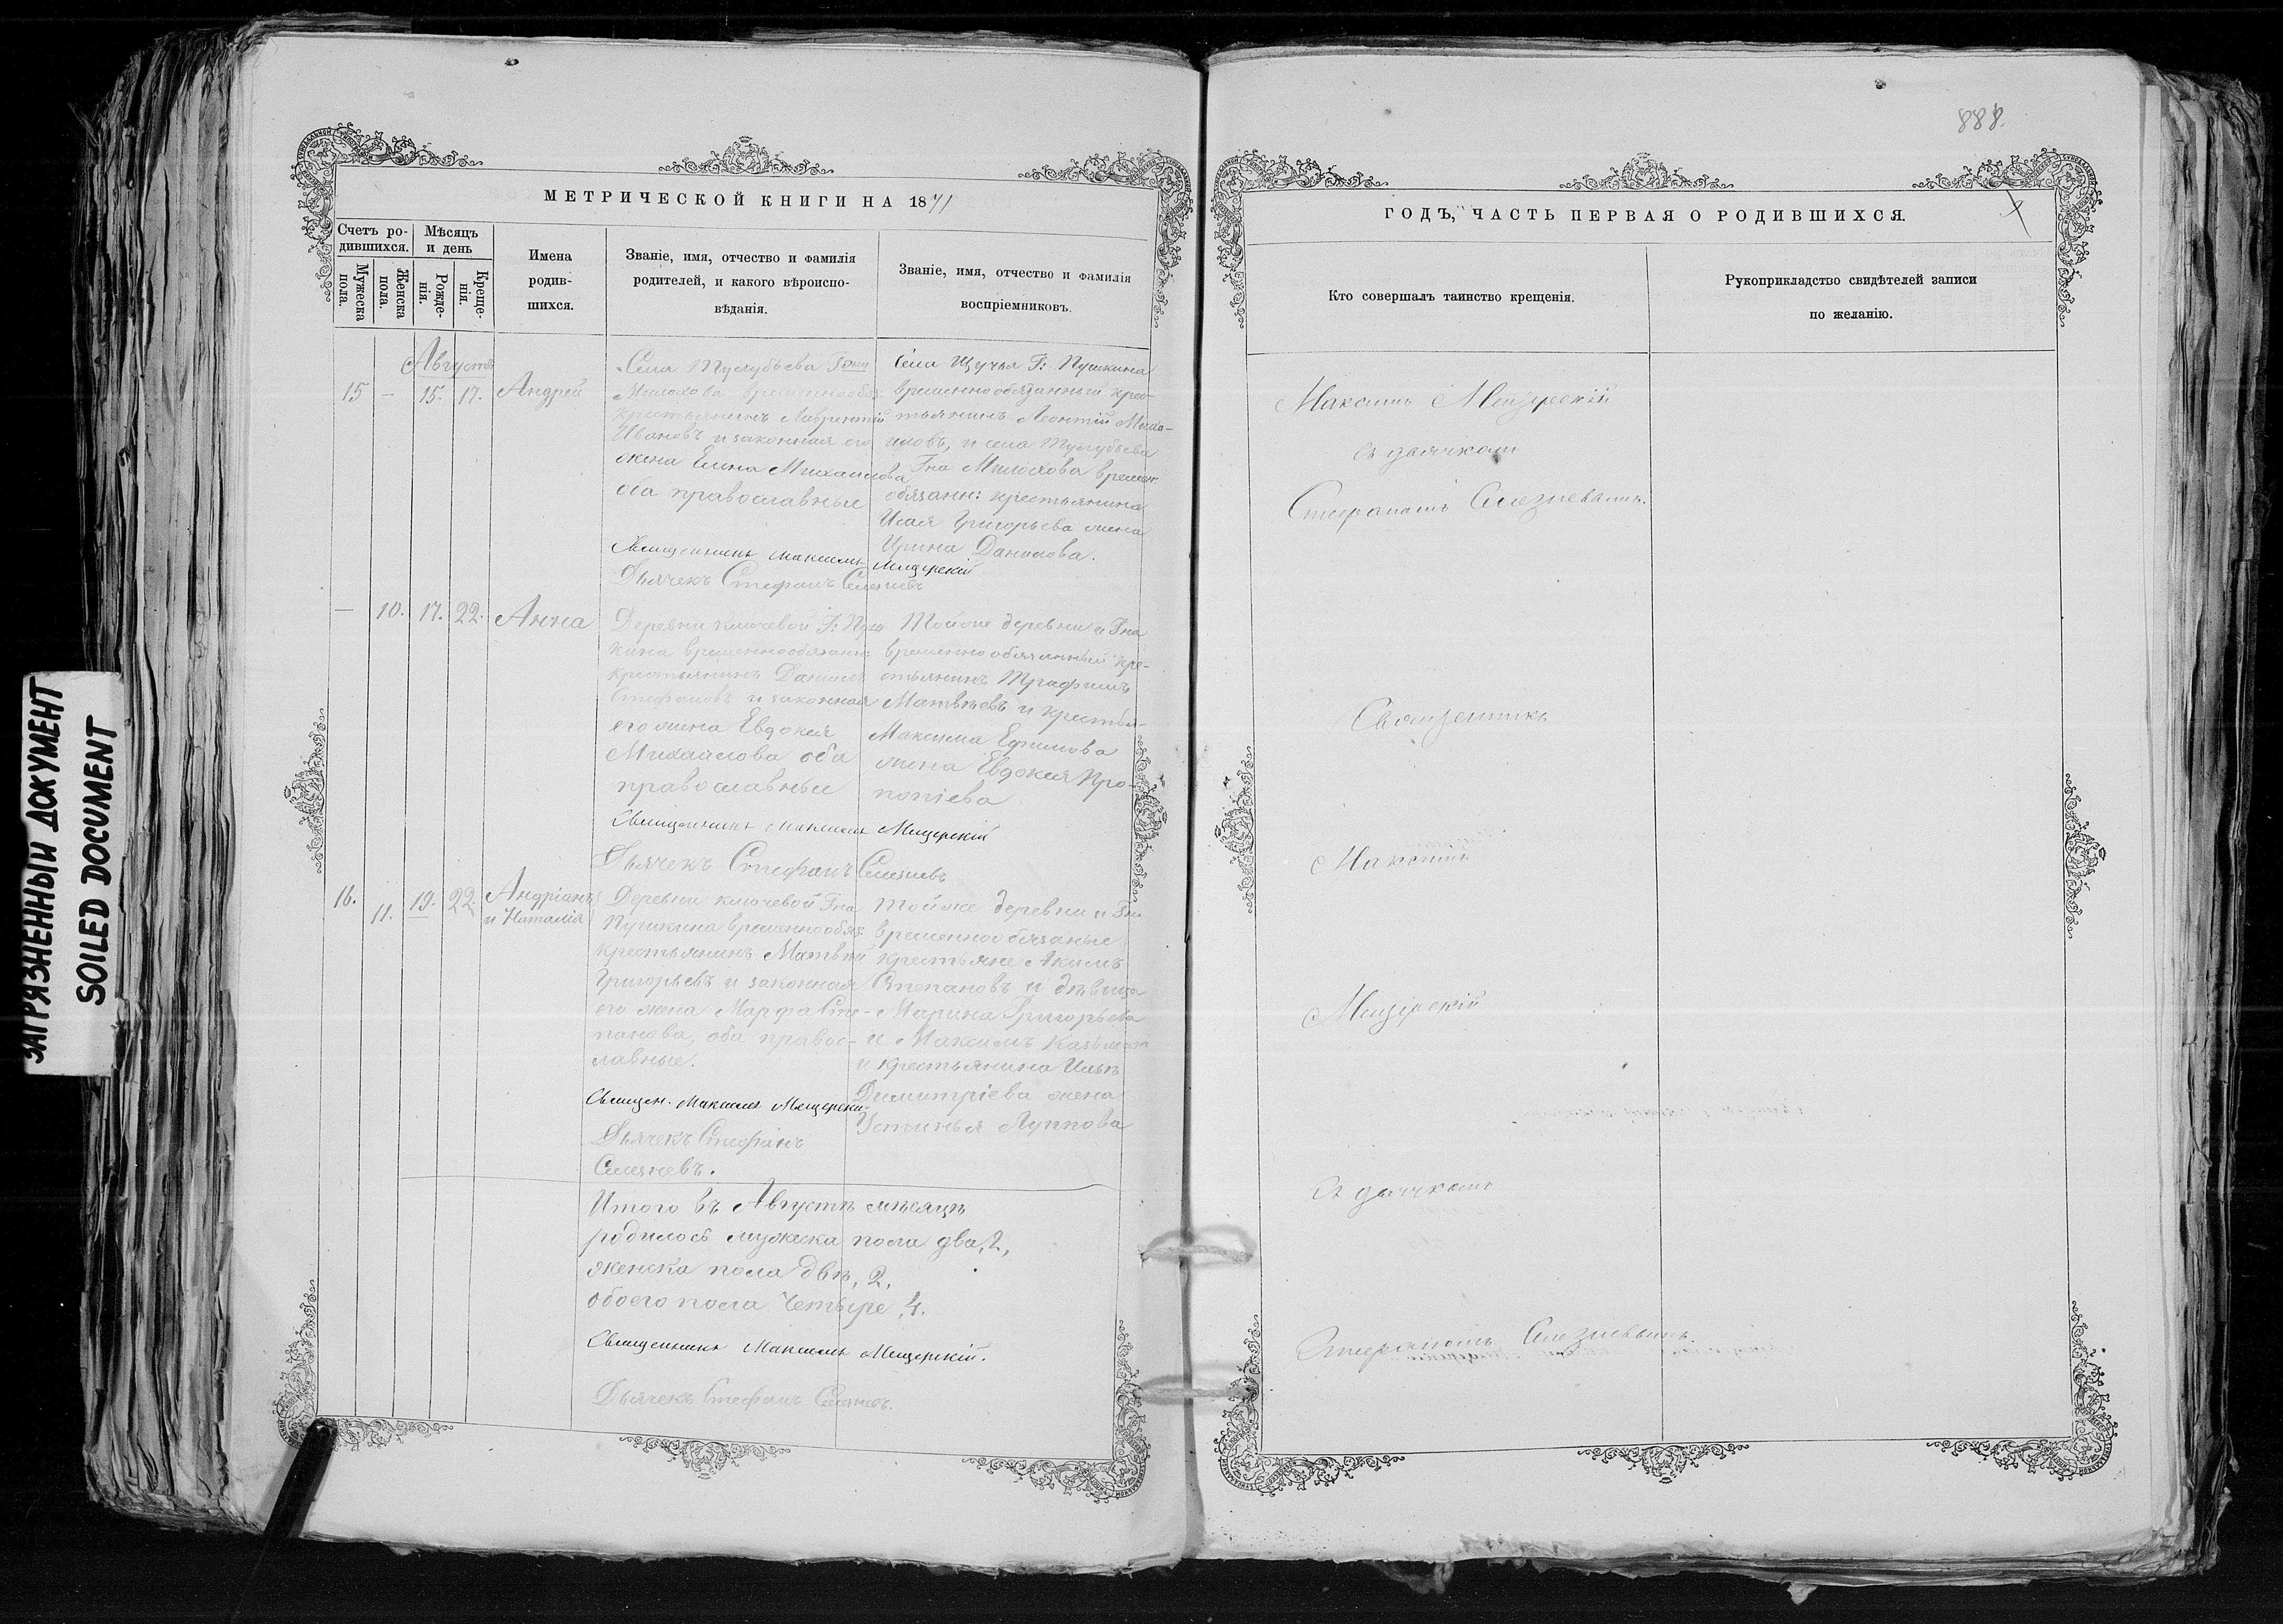 888.
МЕТРИЧЕСКОЙ КНИГИ НА 1871
Счетъ ро-
дившихся.
Мѣсяцъ
и день
Мужеска
пола.
Женска
пола.
Рожде-
нія.
Креще-
нія.
Имена
родив-
шихся.
Званіе, имя, отчество и фамилія
родителей, и какого вѣроиспо-
вѣданія.
Званіе, имя, отчество и фамилія
воспріемниковъ.
Августъ
15 — 15. 17. Андрей
Села
крестьянинъ Лаврентій
Ивановъ и законная его
жена Елена Михаилова
оба православные
Священникъ Максимъ Мещерскій
Дьячекъ Стефанъ Селезневъ
Села Щучья Г: Пушкина
временнообязанный крес-
тьянинъ Леонтій Миха-
иловъ, и села
Гна Милохова времен
обязанн: крестьянина
Исая Григорьева жена
Ирина Данилова.
— 10. 17. 22. Анна
Деревни Ключевой Г: Пуш
кина временнообязанн:
крестьянинъ Даніилъ
Стефановъ и законная
его жена Евдокея
Михайлова оба
православные
Священникъ Максимъ Мещерскій
Дьячекъ Стефанъ Селезневъ
Тойже деревни и Гна
временнообязанный кре-
стьянинъ Трифилъ
Матвѣевъ и крестья-
Максима Ефимова
жена Евдокея Про-
копіева
16. 11. 19. 22. Андріанъ
и Наталія
Деревни Ключевой Гна
Пушкина временнообяз:
крестьянинъ Матвѣй
Григорьевъ и законная
его жена Марфа Сте-
панова, оба правос-
лавные.
Священ. Максимъ Мещерскій
Дьячекъ Стефанъ
Селезневъ.
Тойже деревни и Гна
временнообязаные
крестьяне Акимъ
Степановъ и дѣвица
Марина Григорьева
и Максимъ Казьминъ
и крестьянина Ильи
Димитріева жена
Устинья Луппова
Итого въ Августѣ мѣсяцѣ
родилось мужеска пола два, 2,
женска пола двѣ, 2,
обоего пола четыре, 4.
Священникъ Максимъ Мещерскій.
Дьячекъ Стефанъ Селезневъ.
ГОДЪ, ЧАСТЬ ПЕРВАЯ О РОДИВШИХСЯ.
Кто совершалъ таинство крещенія.
Рукоприкладство свидѣтелей записи
по желанію.
Максимъ Мещерскій
съ дьячкомъ
Стефаномъ Селезневымъ.
Священникъ
Максимъ
Мещерскій
съ дьячкомъ
Стефаномъ Селезневымъ.
ЗАГРЯЗНЕННЫЙ ДОКУМЕНТ
SOILED DOCUMENT